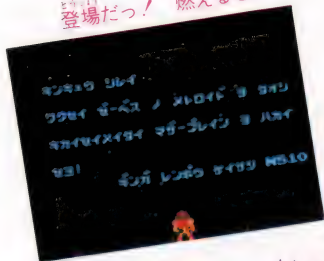 登場だっ! 燃える
キンキュウ シレイ
ワクセイ ゼーベス ノ メトロイド ヲ タオシ
キカイセイメイタイ マザーブレイン ヲ ハカイ
セヨ!
ギンガ レンポウ ケイサツ M510